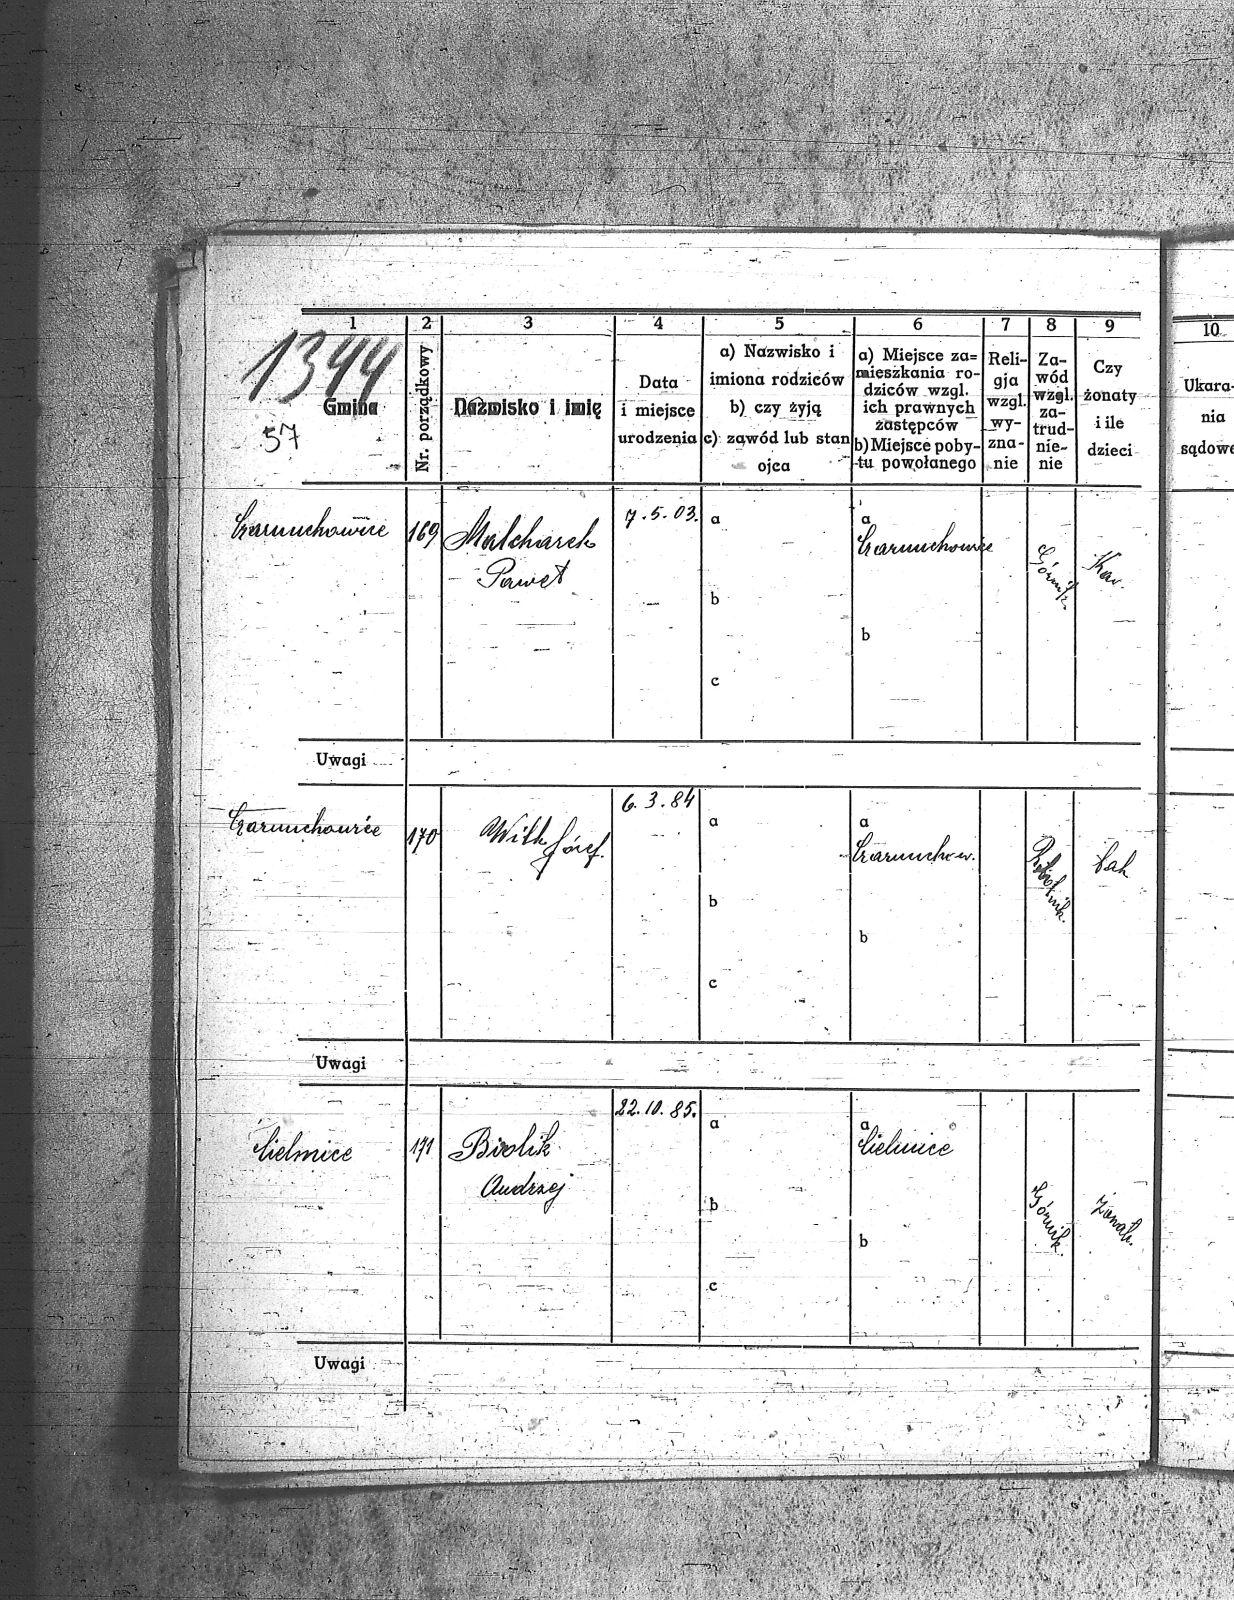 1 2 3 4 5 6 7 8 9 10
1344
57
Gmina
Nr. porządkowy
Nazwisko i imię
Data
i miejsce
urodzenia
a) Nazwisko i
imiona rodziców
b) czy żyją
c) zawód lub stan
ojca
a) Miejsce za=
mieszkania ro-
dziców wzgl.
ich prawnych
zastępców
b) Miejsce poby-
tu powołanego
Reli-
gja
wzgl.
wy-
zna-
nie
Za-
wód
wzgl.
za-
trud-
nie-
nie
Czy
żonaty
i ile
dzieci
Ukara-
nia
sądowe
Czarnuchowice 169 Malcharek 7.5.03. a a
Paweł Czarnuchowice Górnik. Kaw.
b
b
c
Uwagi
Czarnuchowice 170 Wilk Józef. 6.3.84 a a
Czarnuchow. Robotnik.
b
b
c
Uwagi
Cielmice 171 Biolik 22.10.85. a a
Andrzej Cielmice Górnik. Żonat.
b
b
c
Uwagi